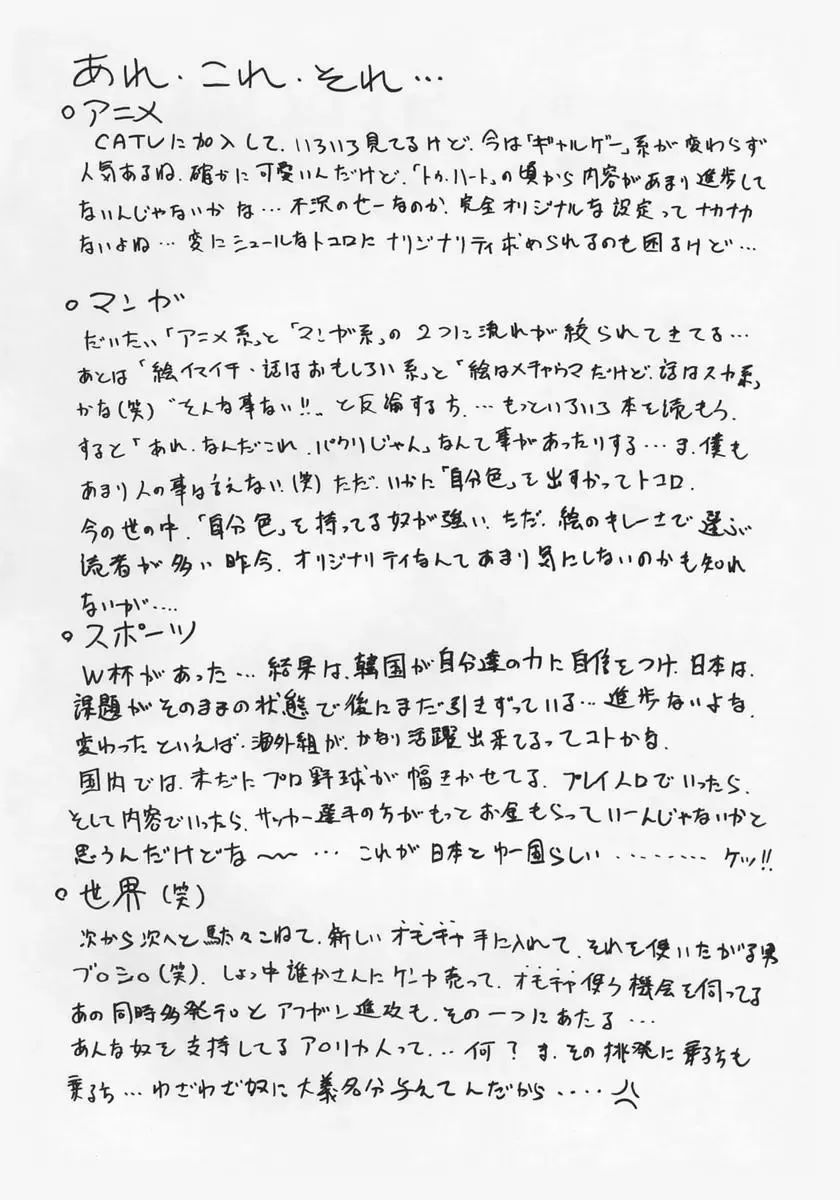 あれ・これ・それ…
○アニメ
CATVに加入して、いろいろ見てるけど、今は「ギャルゲー」系が変わらず
人気あるね、確かに可愛いんだけど、「トゥ・ハート」の頃から内容があまり進歩して
ないんじゃないかな… 不況のセーなのか、完全オリジナルな設定ってナカナカ
ないよね… 変にシュールなトコロにオリジナリティ求められるのも困るけど…
○マンガ
だいたい「アニメ系」と「マンガ系」の2つに流れが絞られてきてる…
あとは「絵イマイチ・話はおもしろい系」と「絵はメチャウマだけど、話はスカ系」
かな(笑)“そんな事ない!!”と反論する方、…もっといろいろ本を読もう、
すると「あれ、なんだこれ、パクリじゃん」なんて事があったりする…ま、僕も
あまり人の事は言えない、(笑)ただ、いかに「自分色」を出すかってトコロ、
今の世の中、「自分色」を持ってる奴が強い、ただ、絵のキレーさで選ぶ
読者が多い昨今、オリジナリティなんてあまり気にしないのかも知れ
ないが‥‥
○スポーツ
W杯があった…結果は、韓国が自分達の力に自信をつけ、日本は、
課題がそのままの状態で後にまだ引きずっている…進歩ないよな、
変わったといえば、海外組が、かなり活躍出来てるってコトかな、
国内では、未だにプロ野球が幅きかせてる、プレイ人口でいったら、
そして内容でいったら、サッカー選手の方がもっとお金もらっていーんじゃないかと
思うんだけどな〜〜 … これが日本とゆー国らしい ……… ケッ!!
○世界(笑)
次から次へと駄々こねて、新しいオモチャ手に入れて、それを使いたがる男
ブ○シ○(笑)、しょっ中誰かさんにケンカ売って、オモチャ使う機会を伺ってる
あの同時多発テ○とアフガン進攻も、その一つにあたる…
あんな奴を支持してるア○リカ人って、…何?ま、その挑発に乗る方も
乗る方…わざわざ奴に大義名分与えてんだから‥‥